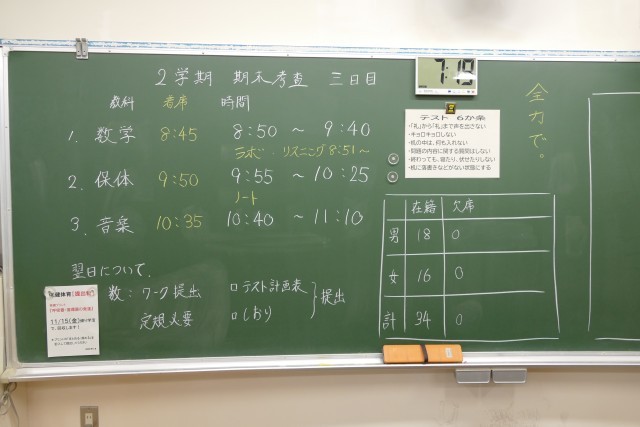 2学期 期末考査 三日目
7:18
全力で。
教科 着席 時間
1. 数学 8:45 8:50 ~ 9:40
ラボ リスニング 8:51~
2. 保体 9:50 9:55 ~ 10:25
ノート
3. 音楽 10:35 10:40 ~ 11:10
翌日について.
数: ワーク提出
定規必要
□テスト計画表
□しおり
提出
テスト 6か条
・「礼」から「礼」まで声を出さない
・キョロキョロしない
・机の中は、何も入れない
・問題の内容に関する質問はしない
・終わっても、寝たり、伏せたりしない
・机に落書きなどがない状態にする
在籍 欠席
男 18 0
女 16 0
計 34 0
11/15(金)